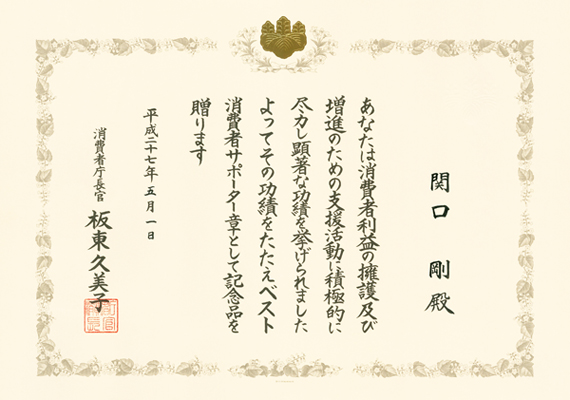 関口 剛 殿
あなたは消費者利益の擁護及び
増進のための支援活動に積極的に
尽力し顕著な功績を挙げられました
よってその功績をたたえベスト
消費者サポーター章として記念品を
贈ります
平成二十七年五月一日
消費者庁長官 板東久美子